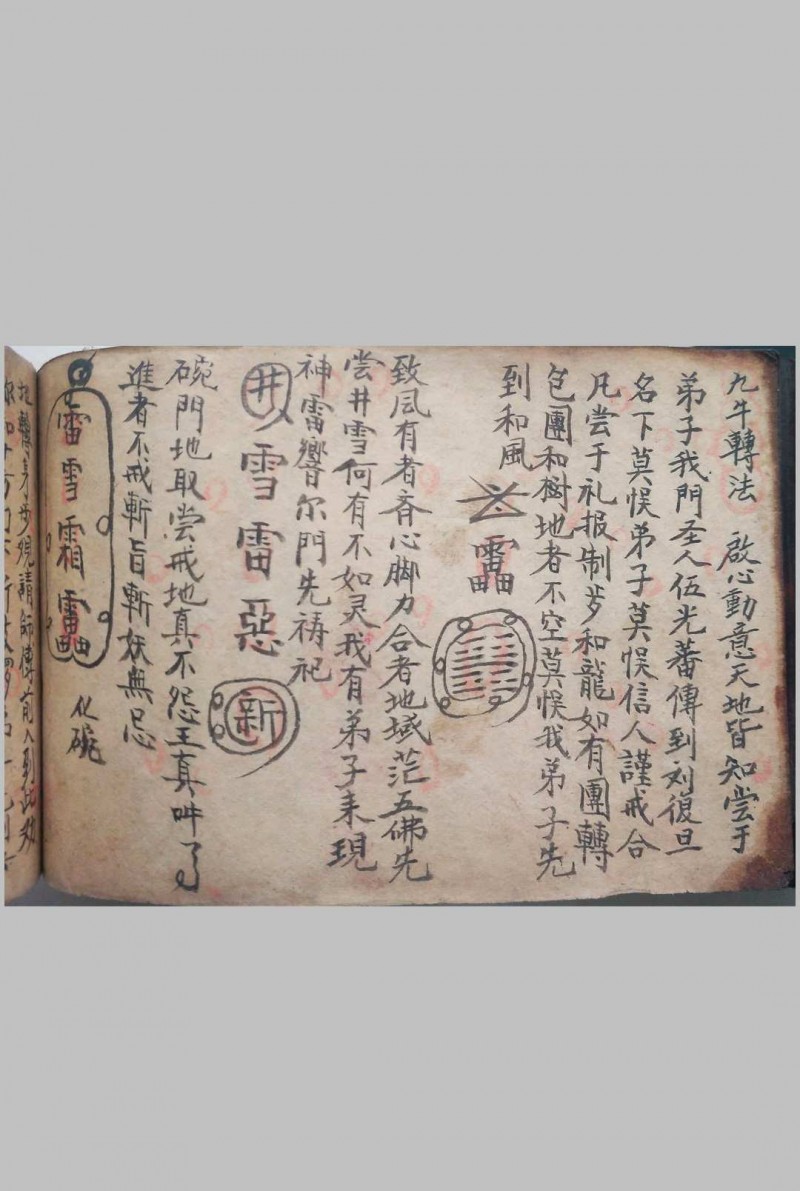 九牛轉法　啟心動意天地皆知尝于
弟子我門圣人伍光蕃傳到刘復旦
名下莫悮弟子莫悮信人謹戒合
凡尝于礼报制岁和龍如有團轉
包團和樹地者不空莫悮我弟子先
到和風
致凨有者斉心脚力合者地域茫五佛先
尝井雪何有不如灵我有弟子来現
神雷響尔門先祷祀
井 雪雷惡 新
碗門地取尝戒地真不怨王真呌了
進者不戒斬旨斬妖無忌
雷雪霜 化碗